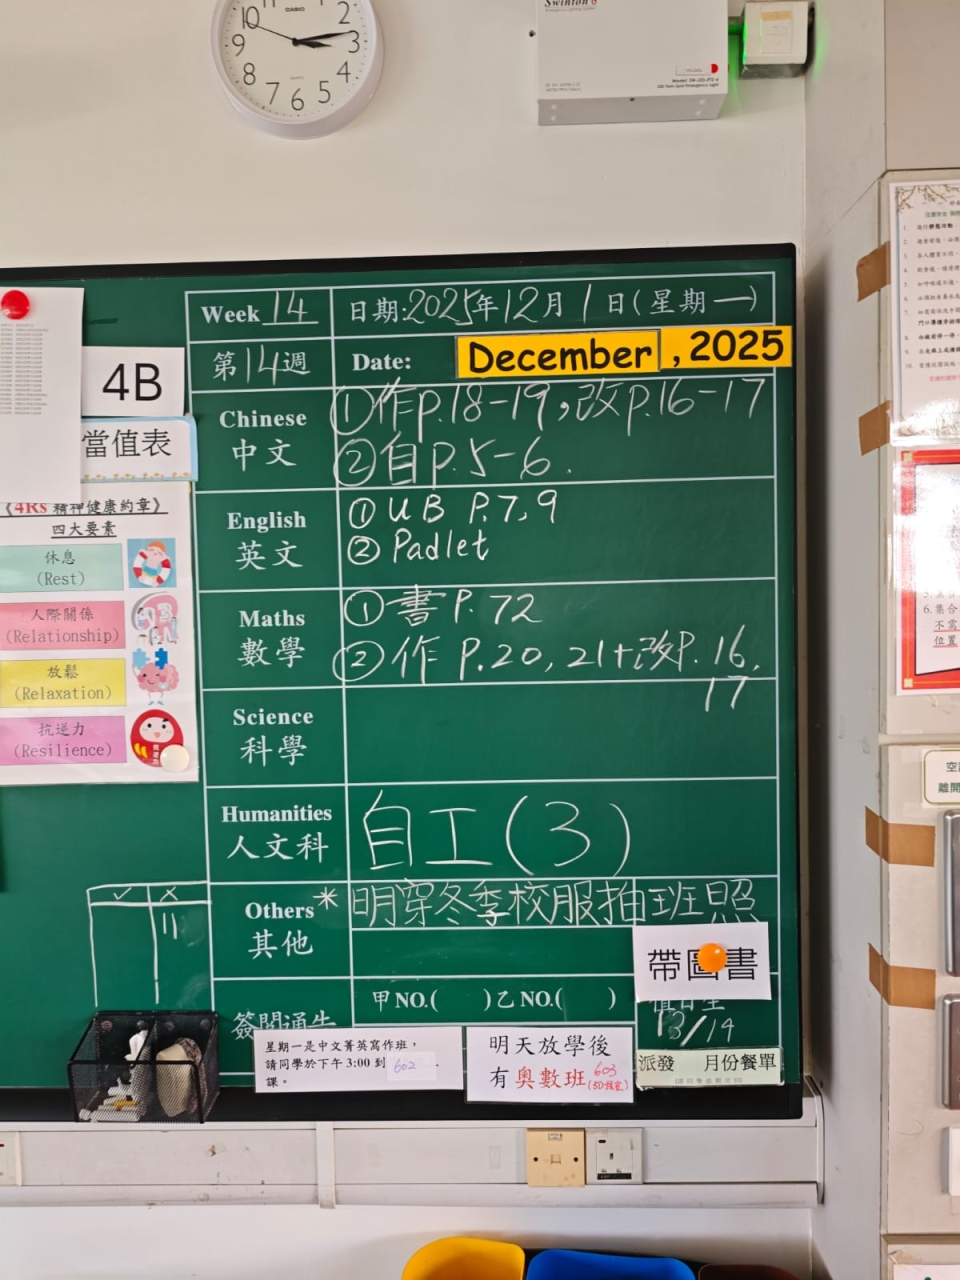 CASIO
10
2
9
3
8
4
7
6
5
Swinton
Emergency Lighting System
Week 14
日期:2025年12月1日(星期一)
第14週
Date:
December , 2025
4B
當值表
Chinese
中文
①作p.18-19,改p.16-17
②自p.5-6.
《4Rs 精神健康約章》
四大要素
休息
(Rest)
人際關係
(Relationship)
放鬆
(Relaxation)
抗逆力
(Resilience)
English
英文
① UB P.7,9
② Padlet
Maths
數學
①書P.72
②作 P.20,21+改P.16,
17
Science
科學
Humanities
人文科
自工(3)
Others
其他
*明穿冬季校服抽班照
帶圖書
✓ ×
甲NO.( )乙NO.( )
值日生
13/14
星期一是中文菁英寫作班,
請同學於下午3:00 到 602
課。
明天放學後
有奧數班 603
派發 月份餐單
6.集合
不需
位置
離開